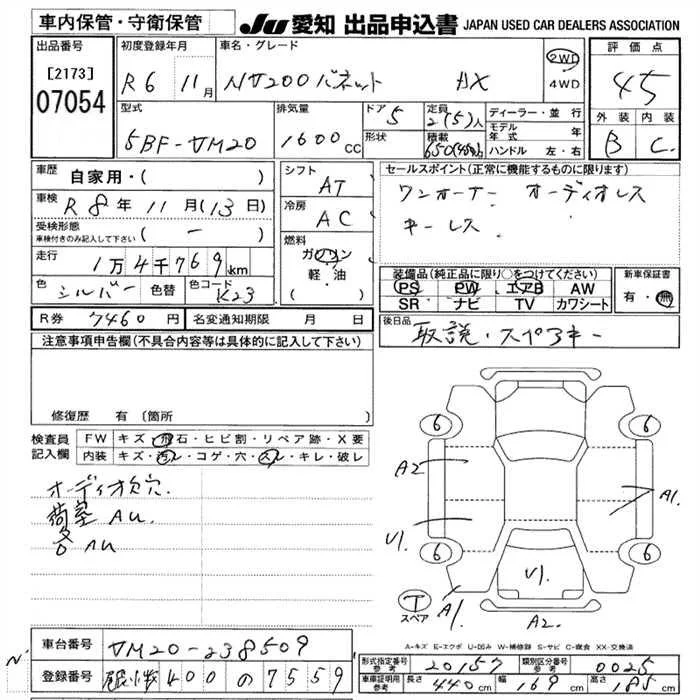 車内保管・守衛保管
JU 愛知 出品申込書 JAPAN USED CAR DEALERS ASSOCIATION
出品番号
[2173]
07054
初度登録年月
R6 11月
車名・グレード
NV200バネット DX
2WD
4WD
評価点
4.5
外装 内装
B C
型式
5BF-VM20
排気量
1600cc
ドア 5
形状
定員 2(5)人
積載
ディーラー・並行
モデル年式 年
ハンドル 左・右
車歴 自家用・( )
車検 R8年11月(13日)
受検形態
車検付きのみ記入して下さい (ー)
走行 1万4千769km
色 シルバー 色替 色コード K23
シフト AT
冷房 AC
燃料
ガソリン
軽・油
セールスポイント(正常に機能するものに限ります)
ワンオーナー オーディオレス
キーレス
装備品(純正品に限り○をつけてください)
PS PW エアB AW
SR ナビ TV カワシート
新車保証書
有・無
R券 7460円 名変通知期限 月 日
後日品 取説・スペアキー
注意事項申告欄(不具合内容等は具体的に記入して下さい)
修復歴 有(箇所
検査員記入欄
FW キズ・飛石・ヒビ割・リペア跡・X要
内装 キズ・汚レ・コゲ・穴・スレ・キレ・破レ
オーディオ欠穴
荷室 AU
AU
6 6
A2 A1
U1
6 6
U1
T
スペア
A1 A2
A-キズ E-エクボ U-凹み W-補修跡 S-サビ C-腐食 XX-交換済
車台番号 VM20-238509
登録番号 400 の 7559
形式指定番号 参考 20157 類別区分番号 参考 0025
車庫証明用 参考 長さ 440cm 幅 169cm 高さ 185cm